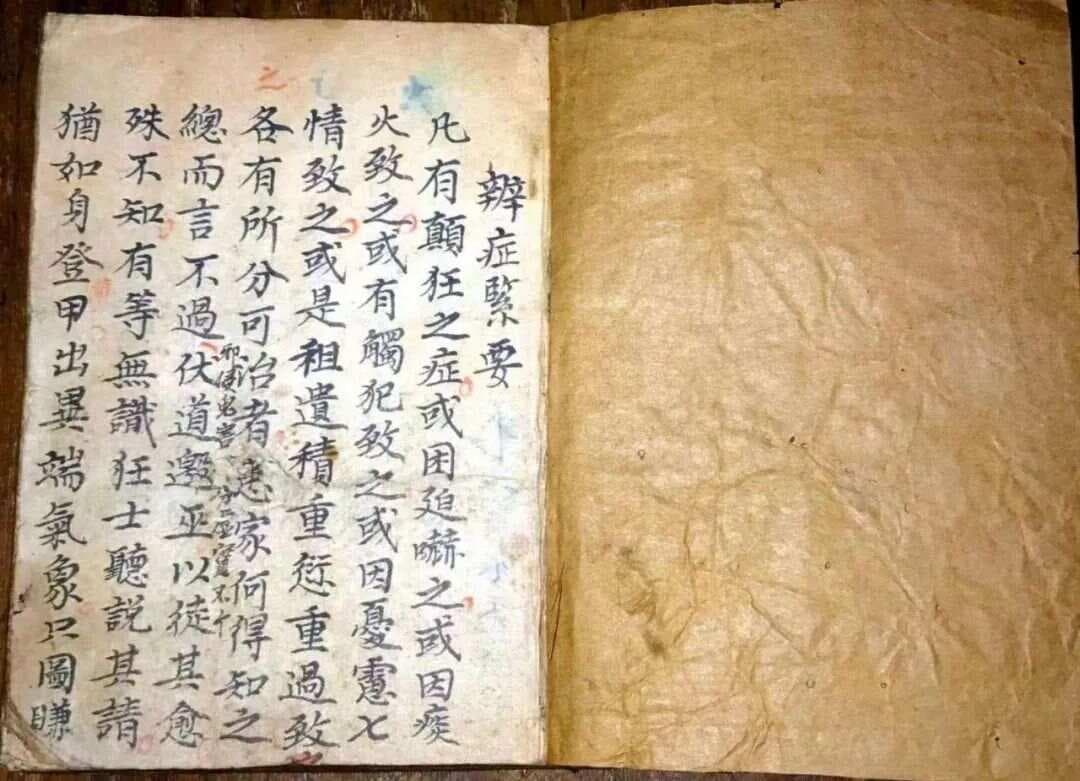 辨症緊要
凡有顛狂之症或因迫嚇之或因痰
火致之或有觸犯致之或因憂慮七
情致之或是祖遺積重愆重過致
之
各有所分可治者患家何得知之
邪侵鬼害
總而言不過伏道邀巫以徒其愈
殊不知有等無識狂士聽説其請
猶如身登甲出異端氣象只圖賺
之